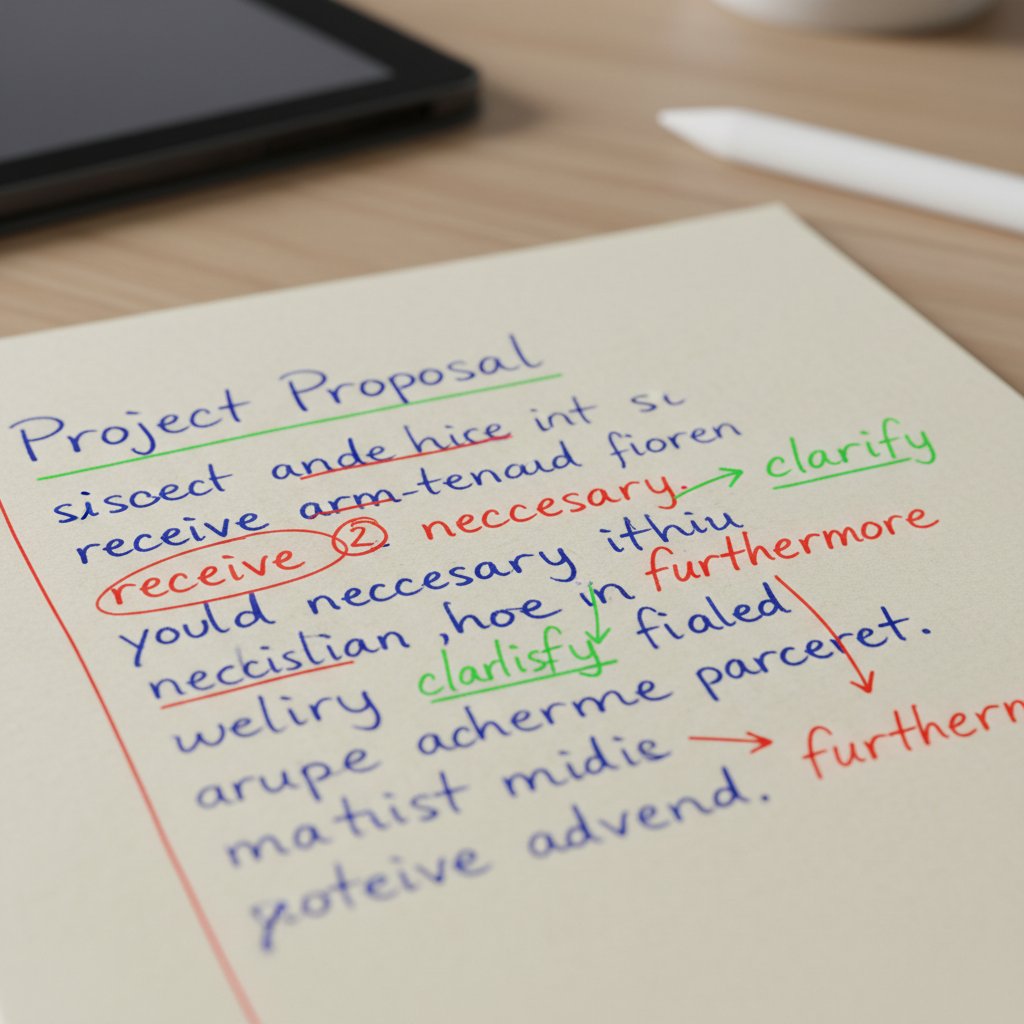 Project Proposal
siscect ande hice int sc
receive arm-tenaud fioren
receive 2 neccesary. → clarify
yould neccesary ithiu
neckistian ,hoe in furthermore
weliry clarlisfy fialed
arupe acherme parceret.
mathist midie → furthern
yoteive advend.